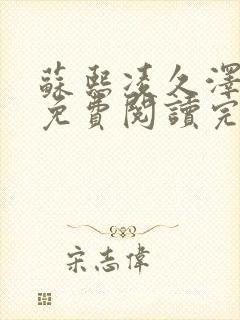 蘇熙凌久澤
免費閱讀完
宋志偉